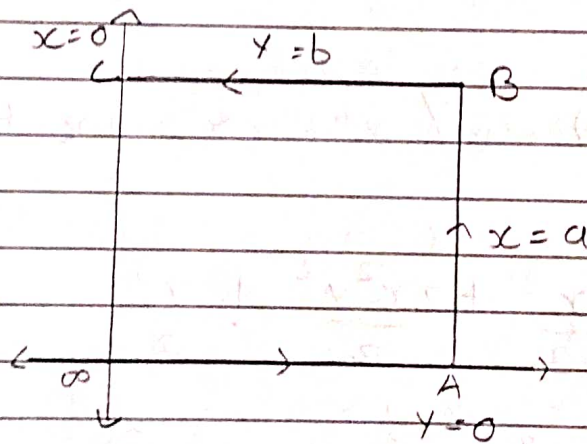 x=0
y=b
C
B
x=a
A
y=0